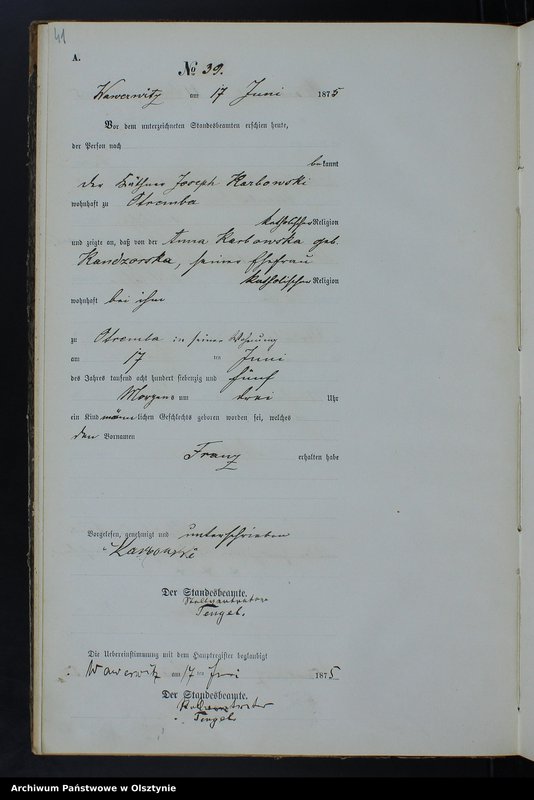 41
A.
No 39.
Wawerwitz am 17 Juni 1875
Vor dem unterzeichneten Standesbeamten erschien heute,
der Person nach
bekannt
der Käthner Joseph Karbowski
wohnhaft zu Otremba
katholischer Religion
und zeigte an, daß von der Anna Karbowska geb.
Kandzorska, seiner Ehefrau
katholischer Religion
wohnhaft bei ihm
zu Otremba in seiner Wohnung
am 17 ten Juni
des Jahres tausend acht hundert siebenzig und fünf
Morgens um drei Uhr
ein Kind männlichen Geschlechts geboren worden sei, welches
den Vornamen
Franz
erhalten habe
Vorgelesen, genehmigt und unterschrieben
Karbowski
Der Standesbeamte.
Stellvertreter
Tengel.
Die Uebereinstimmung mit dem Hauptregister beglaubigt
Wawerwitz am 17 ten Juni 1875
Der Standesbeamte.
Stellvertreter
Tengel
Archiwum Państwowe w Olsztynie